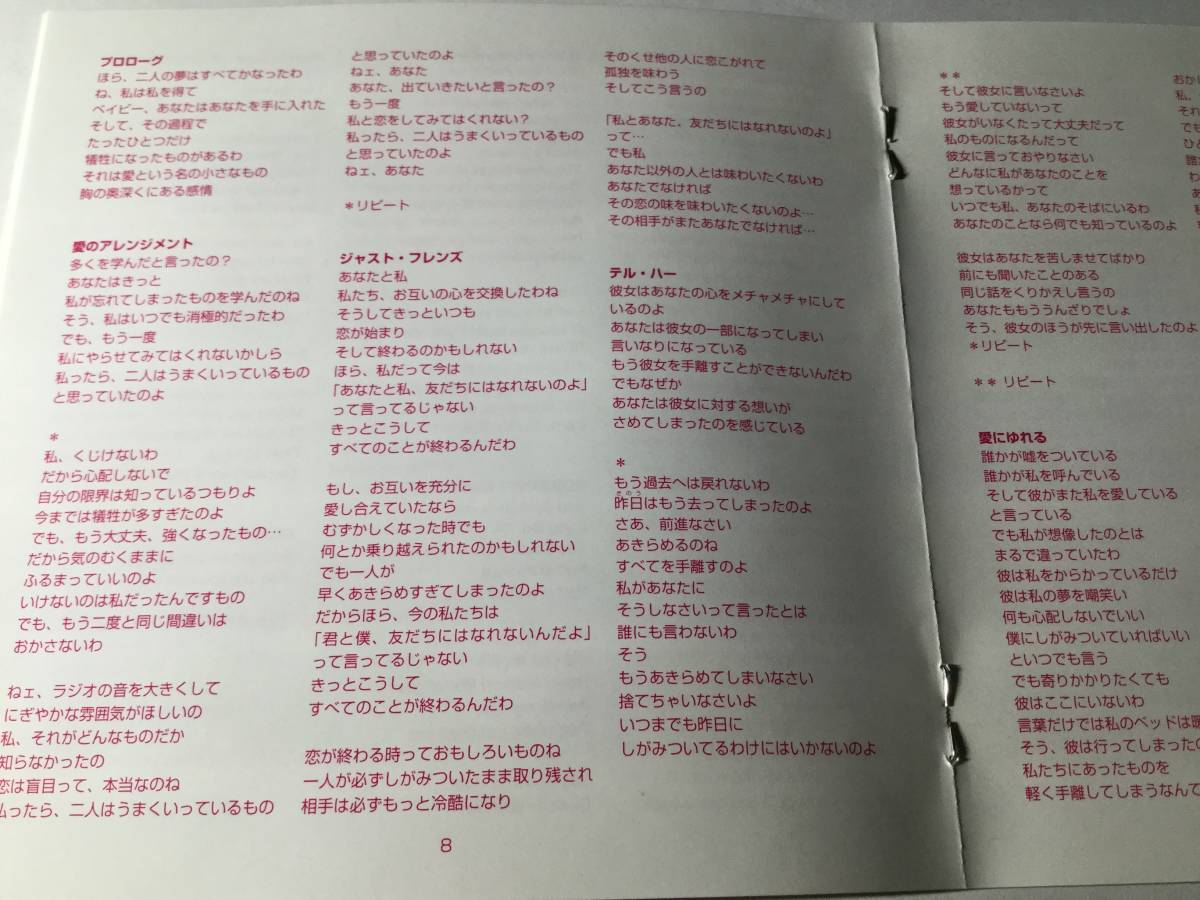 プロローグ
ほら、二人の夢はすべてかなったわ
ね、私は私を得て
ベイビー、あなたはあなたを手に入れた
そして、その過程で
たったひとつだけ
犠牲になったものがあるわ
それは愛という名の小さなもの
胸の奥深くにある感情
愛のアレンジメント
多くを学んだと言ったの？
あなたはきっと
私が忘れてしまったものを学んだのね
そう、私はいつでも消極的だったわ
でも、もう一度
私にやらせてみてはくれないかしら
私ったら、二人はうまくいっているもの
と思っていたのよ
＊
私、くじけないわ
だから心配しないで
自分の限界は知っているつもりよ
今までは犠牲が多すぎたのよ
でも、もう大丈夫、強くなったもの…
だから気のむくままに
ふるまっていいのよ
いけないのは私だったんですもの
でも、もう二度と同じ間違いは
おかさないわ
ねェ、ラジオの音を大きくして
にぎやかな雰囲気がほしいの
私、それがどんなものだか
知らなかったの
恋は盲目って、本当なのね
私ったら、二人はうまくいっているもの
と思っていたのよ
ねェ、あなた
あなた、出ていきたいと言ったの？
もう一度
私と恋をしてみてはくれない？
私ったら、二人はうまくいっているもの
と思っていたのよ
ねェ、あなた
＊リピート
ジャスト・フレンズ
あなたと私
私たち、お互いの心を交換したわね
そうしてきっといつも
恋が始まり
そして終わるのかもしれない
ほら、私だって今は
「あなたと私、友だちにはなれないのよ」
って言ってるじゃない
きっとこうして
すべてのことが終わるんだわ
もし、お互いを充分に
愛し合えていたなら
むずかしくなった時でも
何とか乗り越えられたのかもしれない
でも一人が
早くあきらめすぎてしまったのよ
だからほら、今の私たちは
「君と僕、友だちにはなれないんだよ」
って言ってるじゃない
きっとこうして
すべてのことが終わるんだわ
恋が終わる時っておもしろいものね
一人が必ずしがみついたまま取り残され
相手は必ずもっと冷酷になり
そのくせ他の人に恋こがれて
孤独を味わう
そしてこう言うの
「私とあなた、友だちにはなれないのよ」
って…
でも私
あなた以外の人とは味わいたくないわ
あなたでなければ
その恋の味を味わいたくないのよ…
その相手がまたあなたでなければ…
テル・ハー
彼女はあなたの心をメチャメチャにして
いるのよ
あなたは彼女の一部になってしまい
言いなりになっている
もう彼女を手離すことができないんだわ
でもなぜか
あなたは彼女に対する想いが
さめてしまったのを感じている
＊
もう過去へは戻れないわ
昨日はもう去ってしまったのよ
さあ、前進なさい
あきらめるのね
すべてを手離すのよ
私があなたに
そうしなさいって言ったとは
誰にも言わないわ
そう
もうあきらめてしまいなさい
捨てちゃいなさいよ
いつまでも昨日に
しがみついてるわけにはいかないのよ
8
＊＊
そして彼女に言いなさいよ
もう愛していないって
彼女がいなくたって大丈夫だって
私のものになるんだって
彼女に言っておやりなさい
どんなに私があなたのことを
想っているかって
いつでも私、あなたのそばにいるわ
あなたのことなら何でも知っているのよ
彼女はあなたを苦しませてばかり
前にも聞いたことのある
同じ話をくりかえし言うの
あなたももううんざりでしょ
そう、彼女のほうが先に言い出したのよ
＊リピート
＊＊ リピート
愛にゆれる
誰かが嘘をついている
誰かが私を呼んでいる
そして彼がまた私を愛している
と言っている
でも私が想像したのとは
まるで違っていたわ
彼は私をからかっているだけ
彼は私の夢を嘲笑い
何も心配しないでいい
僕にしがみついていればいい
といつでも言う
でも寄りかかりたくても
彼はここにいないわ
言葉だけでは私のベッドは暖
そう、彼は行ってしまったの
私たちにあったものを
軽く手離してしまうなんて
おかし
私、
それ
でも
ひと